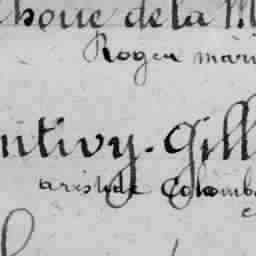 houe de la M
Roger mari
ntivy-Gill
aristide Colomb